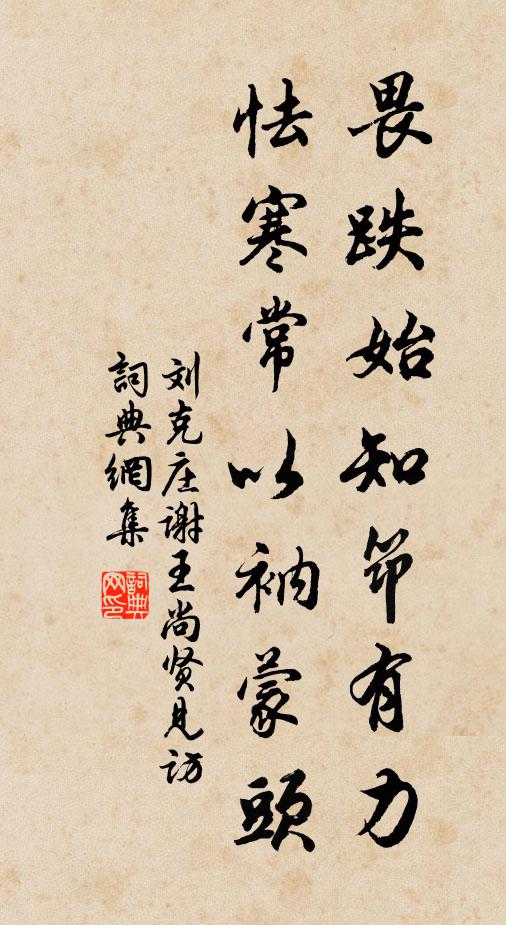 畏跌始知筇有力
怯寒常以衲蒙頭
刘克庄谢王尚贤见访
詞典網集
詞典网印